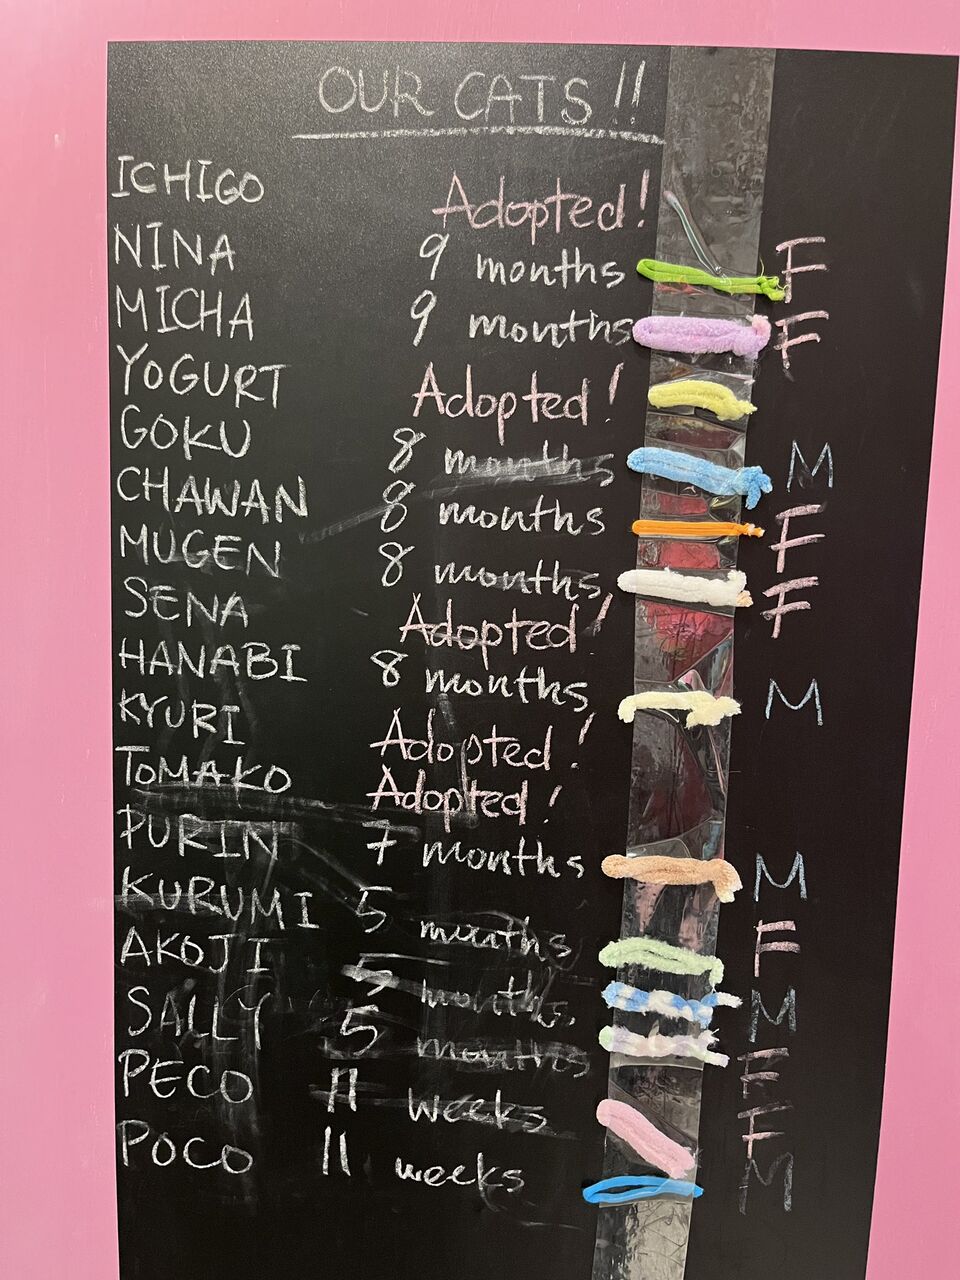 OUR CATS!!
ICHIGO Adopted!
NINA 9 months F
MICHA 9 months F
YOGURT Adopted!
GOKU 8 months M
CHAWAN 8 months F
MUGEN 8 months F
SENA Adopted!
HANABI 8 months M
KYURI Adopted!
TOMAKO Adopted!
PURIN 7 months M
KURUMI 5 months F
AKOJI 5 months M
SALLY 5 months F
PECO 11 weeks F
POCO 11 weeks M